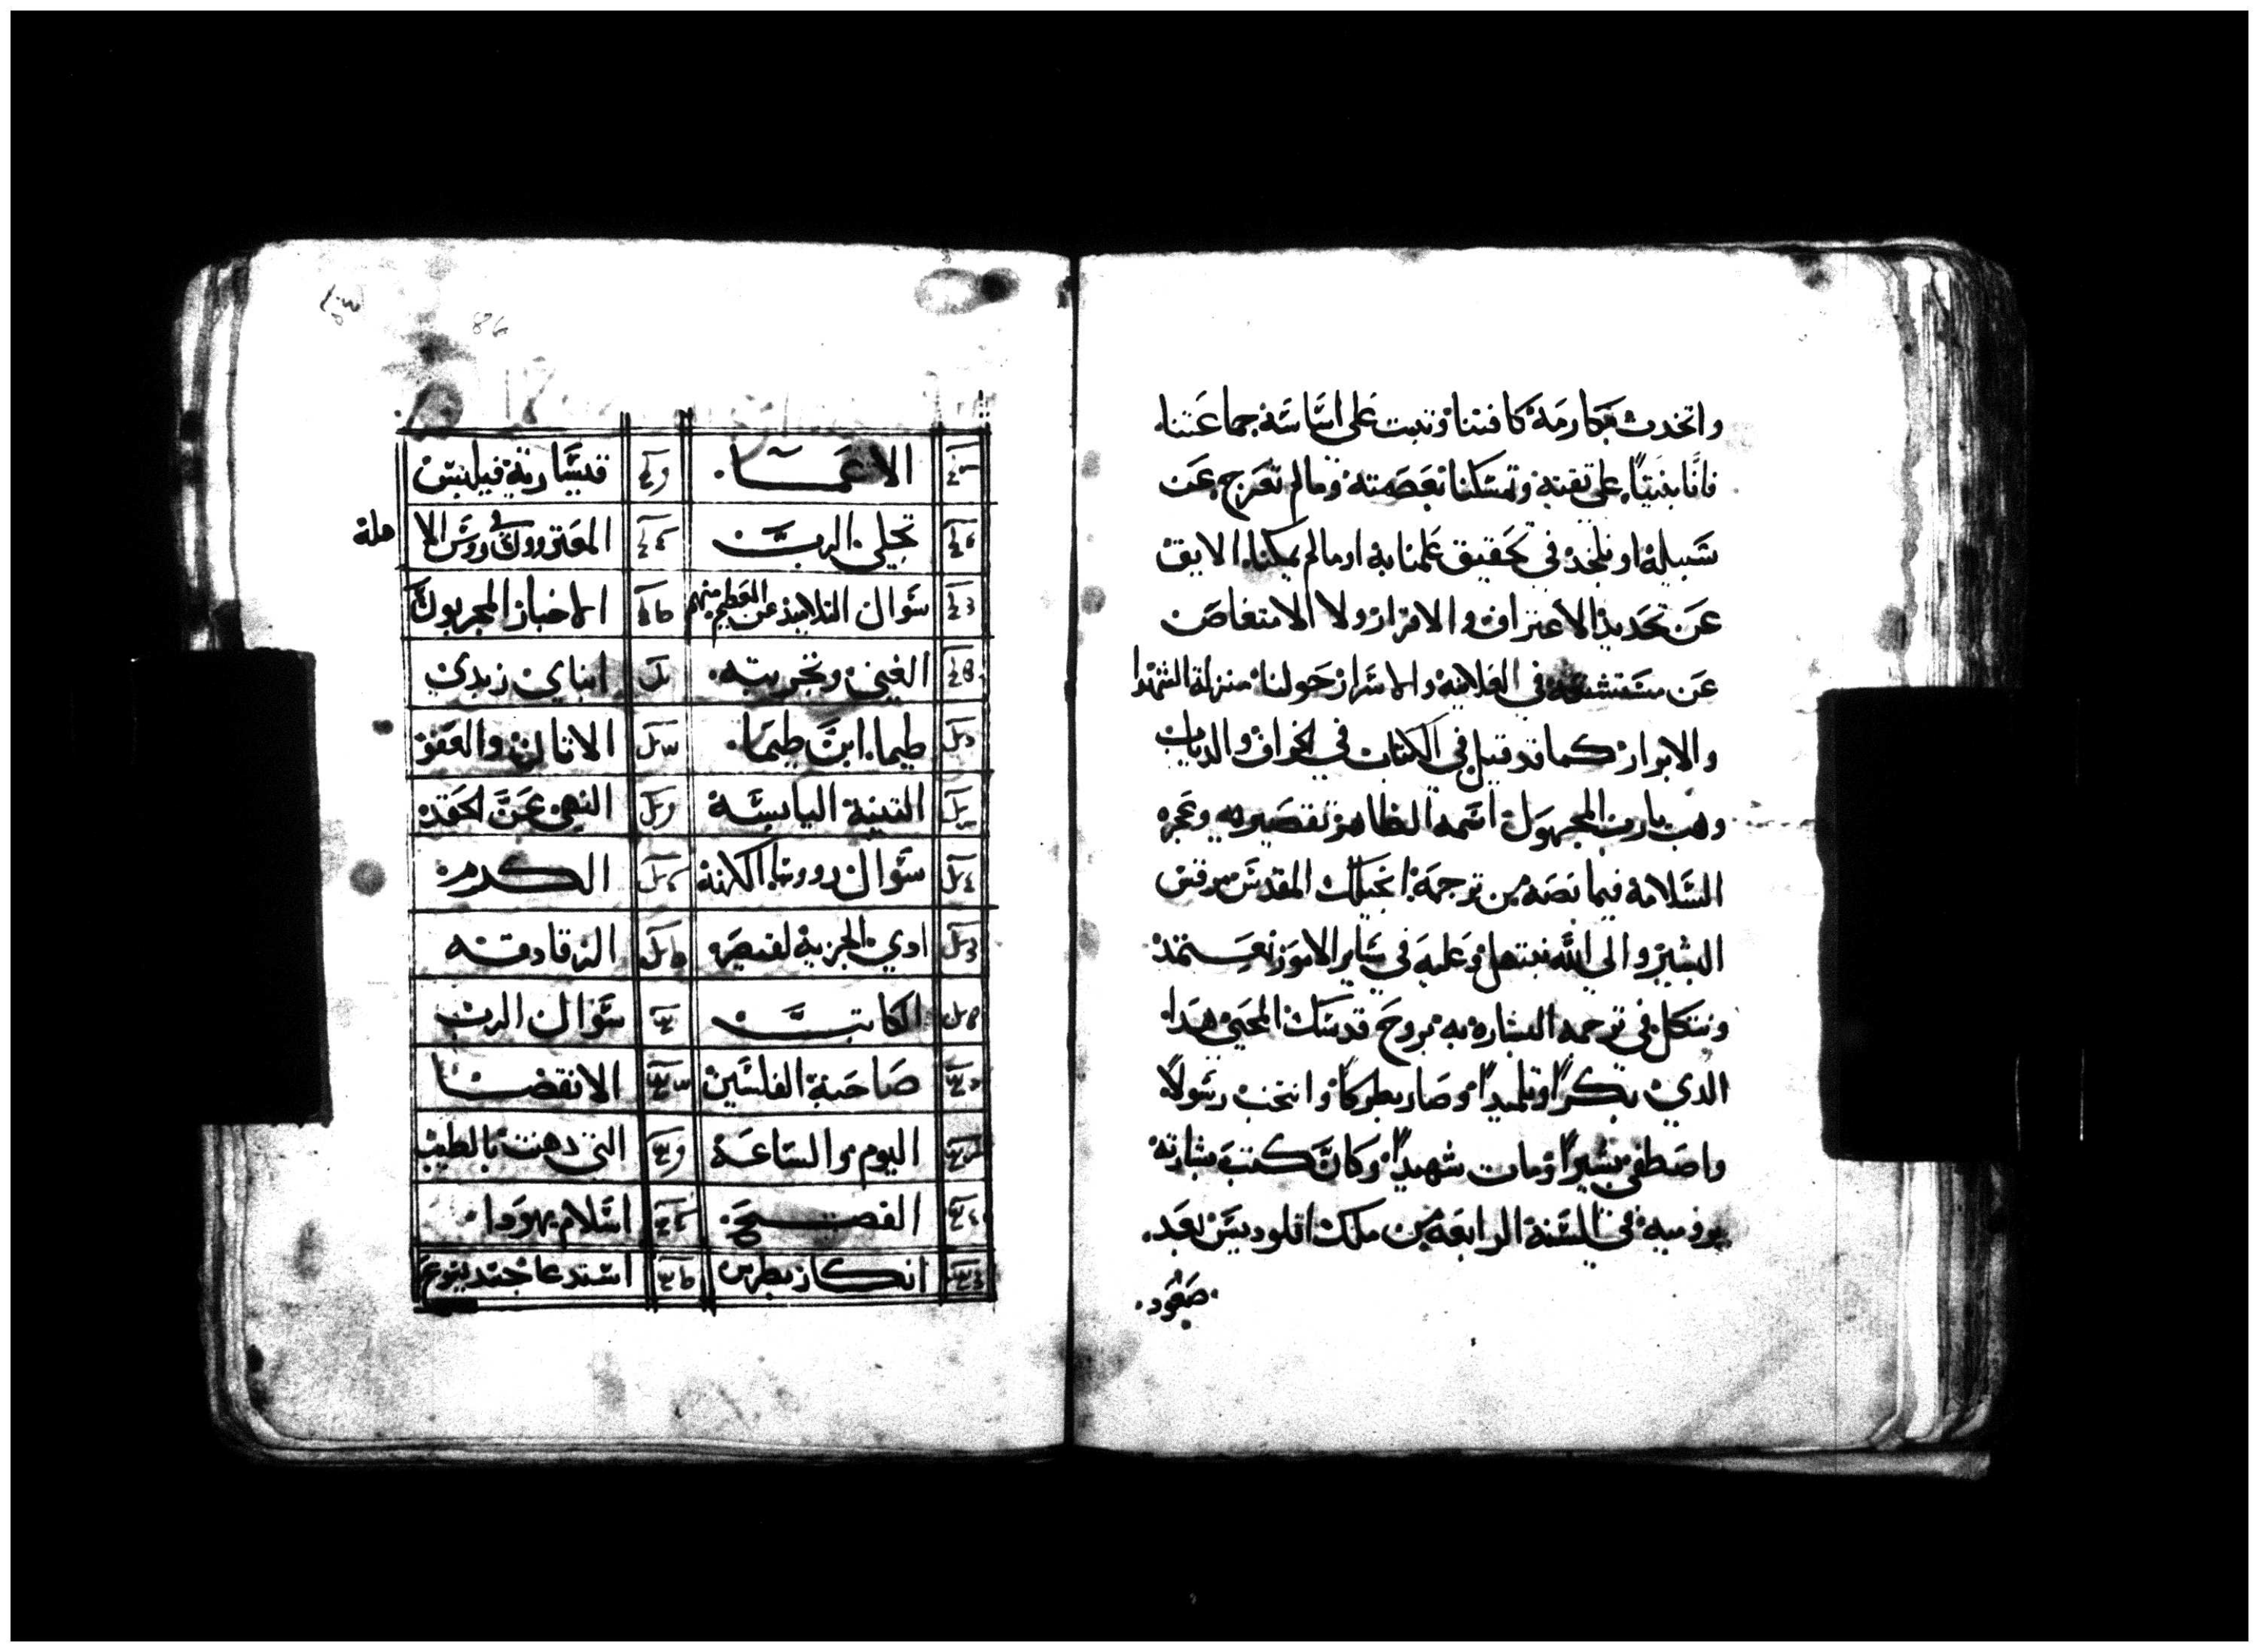 واتخدت مكارمة كافتنا وتبتت على اساسة جماعتنا
فاننا بنينا على تقته وتمسكنا بعصمته ومالم نعرج عن
سبيله او نلجد في تحقيق علمنا به او مالم يمكنا الا بق
عن تحديد الاعتراف والاقرار ولا الامتغاص
عن في العلانيه والاسرار حولنا منزلة الشهدا
والابرار كما قد قيل في الكتاب في الخراف والدياب
وهب يارب المجهول اسمه الظاهر تقصيره وعجزه
السلامة فيما نصه من ترجمة انجيلك المقدس مرقس
البشير والى الله نبتهل وعليه في ساير الامور نعتمد
ونتكل في ترجمه البشاره به بروح قدسك المحيي هدا
الدي بكرًا وتلميدًا وصار بطركًا وانتخب رسولًا
واصطفى بشيرًا ومات شهيدًا وكان كتب بشارته
بروميه في السنة الرابعة من ملك اقلوديس بعد
صعود
86
الاعما قيسارية فيلبس
تجلي الرب المعترو في روس الاهلة
سوال التلاميد عن العظيم منهم الاخبار المجربون
الغني وتجربته ابناي زبدي
طيما ابن طيما الاتان والعفو
التينة اليابسة النهي عن الحقد
سوال رووسا الكهنة الكرم
ادي الجزية لقيصر الزنادقه
الكاتب سوال الرب
صاحبة الفلسين الانقضا
اليوم والساعة التي دهنت بالطيب
الفصح اسلام يهودا
انكار بطرس استدعا جسد يسوع